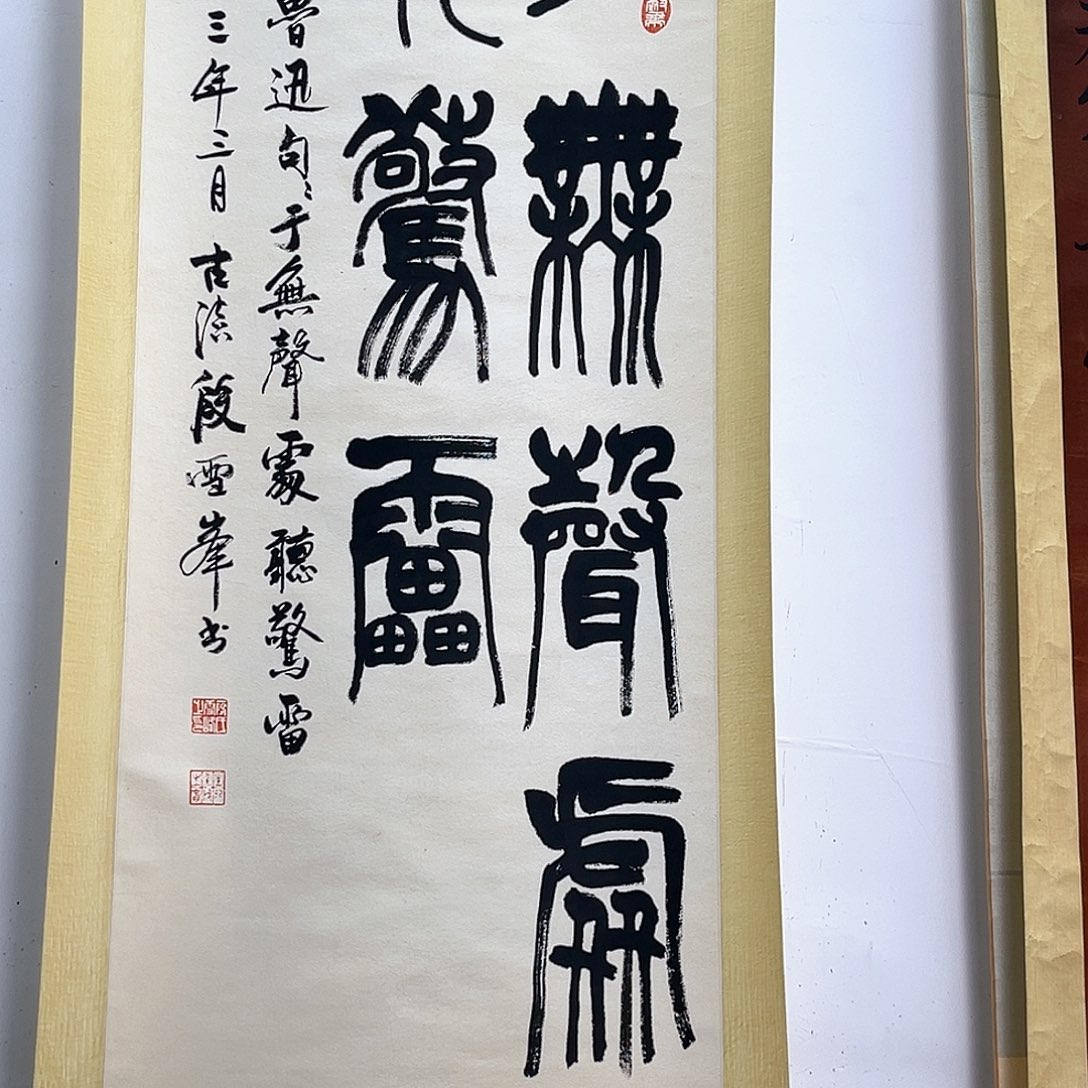 無聲處
驚雷
魯迅句：于無聲處聽驚雷
三年二月古滇段雪峯书